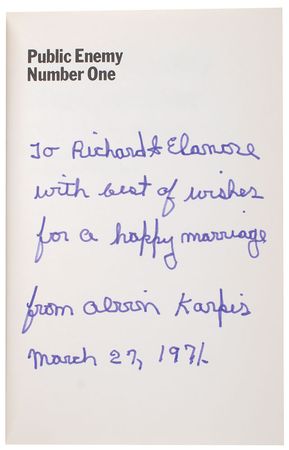 Public Enemy
Number One
To Richard & Elanore
with best of wishes
for a happy marriage
from alvin Karpis
march 27, 1971.